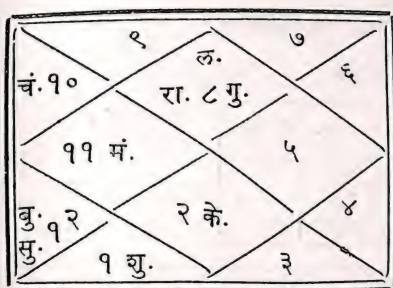 ९ ल. ७
चं. १० रा. ८ गु. ६
११ मं. ५
बु. १२ २ के. ४
सु.
१ शु. ३